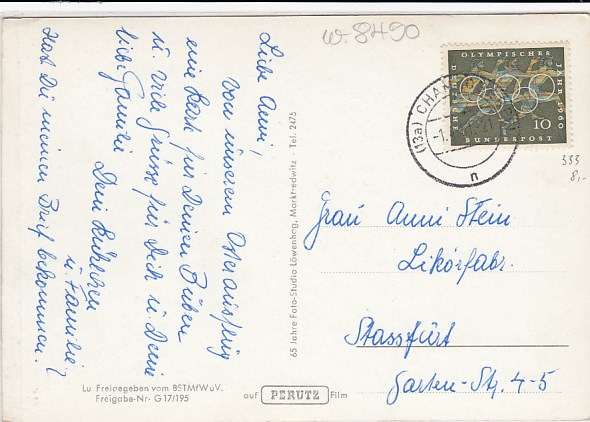 w-8490
Liebe Anni,
von unserem Osterausflug
eine Karte für Deinen Buben
u. viele Grüsse für Dich u. Deine
liebe Familie
Dein
u. Familie
Hast Du meinen Brief bekommen?
65 Jahre Foto-Studio Löwenhag, Marktredwitz · Tel. 2475
Lu Freigegeben vom BSTMfWuV.
Freigabe-Nr. G 17/195
auf PERUTZ Film
OLYMPISCHES
JAHR 1960
DEUTSCHE
BUNDESPOST
10
(13a)
n
333
8,-
Frau Anni Stein
Likörfabr.
Stassfurt
Garten-Str. 4-5